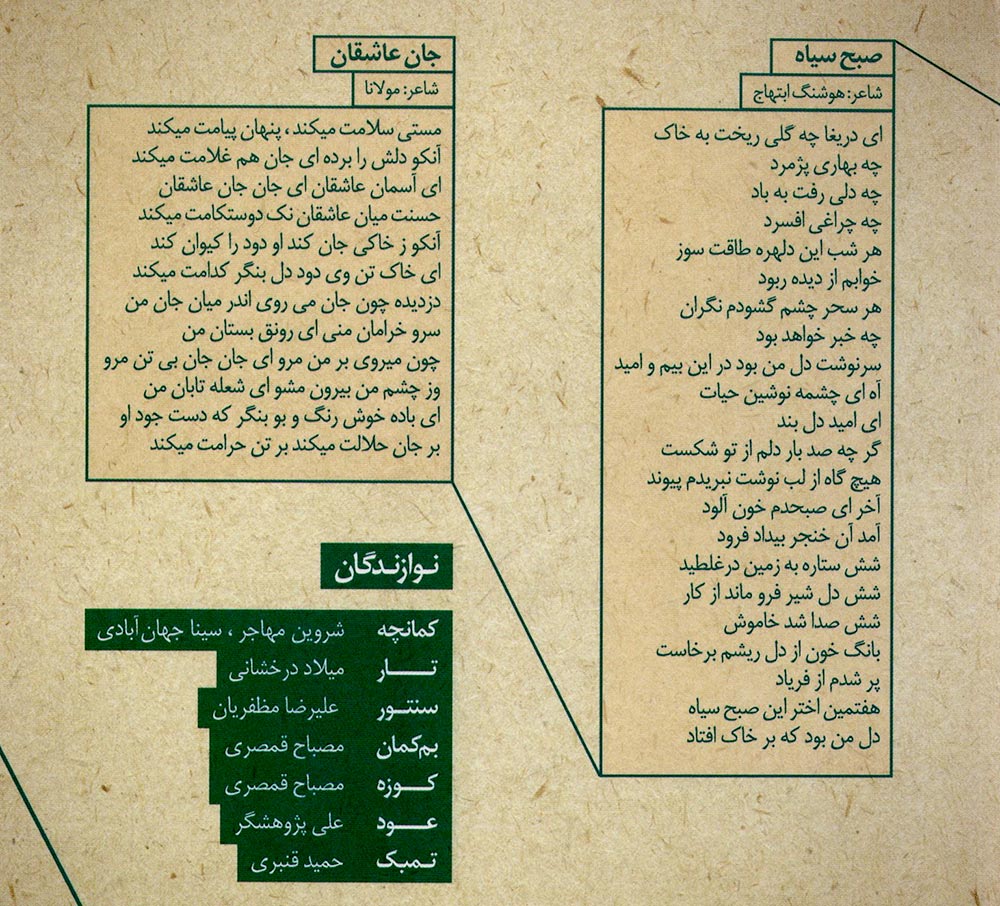 صبح سیاه
شاعر: هوشنگ ابتهاج
ای دریغا چه گلی ریخت به خاک
چه بهاری پژمرد
چه دلی رفت به باد
چه چراغی افسرد
هر شب این دلهره طاقت سوز
خوابم از دیده ربود
هر سحر چشم گشودم نگران
چه خبر خواهد بود
سرنوشت دل من بود در این بیم و امید
آه ای چشمه نوشین حیات
ای امید دل بند
گر چه صد بار دلم از تو شکست
هیچ گاه از لب نوشت نبریدم پیوند
آخر ای صبحدم خون آلود
آمد آن خنجر بیداد فرود
شش ستاره به زمین درغلطید
شش دل شیر فرو ماند از کار
شش صدا شد خاموش
بانگ خون از دل ریشم برخاست
پر شدم از فریاد
هفتمین اختر این صبح سیاه
دل من بود که بر خاک افتاد
جان عاشقان
شاعر: مولانا
مستی سلامت میکند، پنهان پیامت میکند
آنکو دلش را برده ای جان هم غلامت میکند
ای آسمان عاشقان ای جان جان عاشقان
حسنت میان عاشقان نک دوستکامت میکند
آنکو ز خاکی جان کند او دود را کیوان کند
ای خاک تن وی دود دل بنگر کدامت میکند
دزدیده چون جان می روی اندر میان جان من
سرو خرامان منی ای رونق بستان من
چون میروی بر من مرو ای جان جان بی تن مرو
وز چشم من بیرون مشو ای شعله تابان من
ای باده خوش رنگ و بو بنگر که دست جود او
بر جان حلالت میکند بر تن حرامت میکند
نوازندگان
کمانچه شروین مهاجر ، سینا جهان آبادی
تار میلاد درخشانی
سنتور علیرضا مظفریان
بم‌کمان مصباح قمصری
کوزه مصباح قمصری
عود علی پژوهشگر
تمبک حمید قنبری